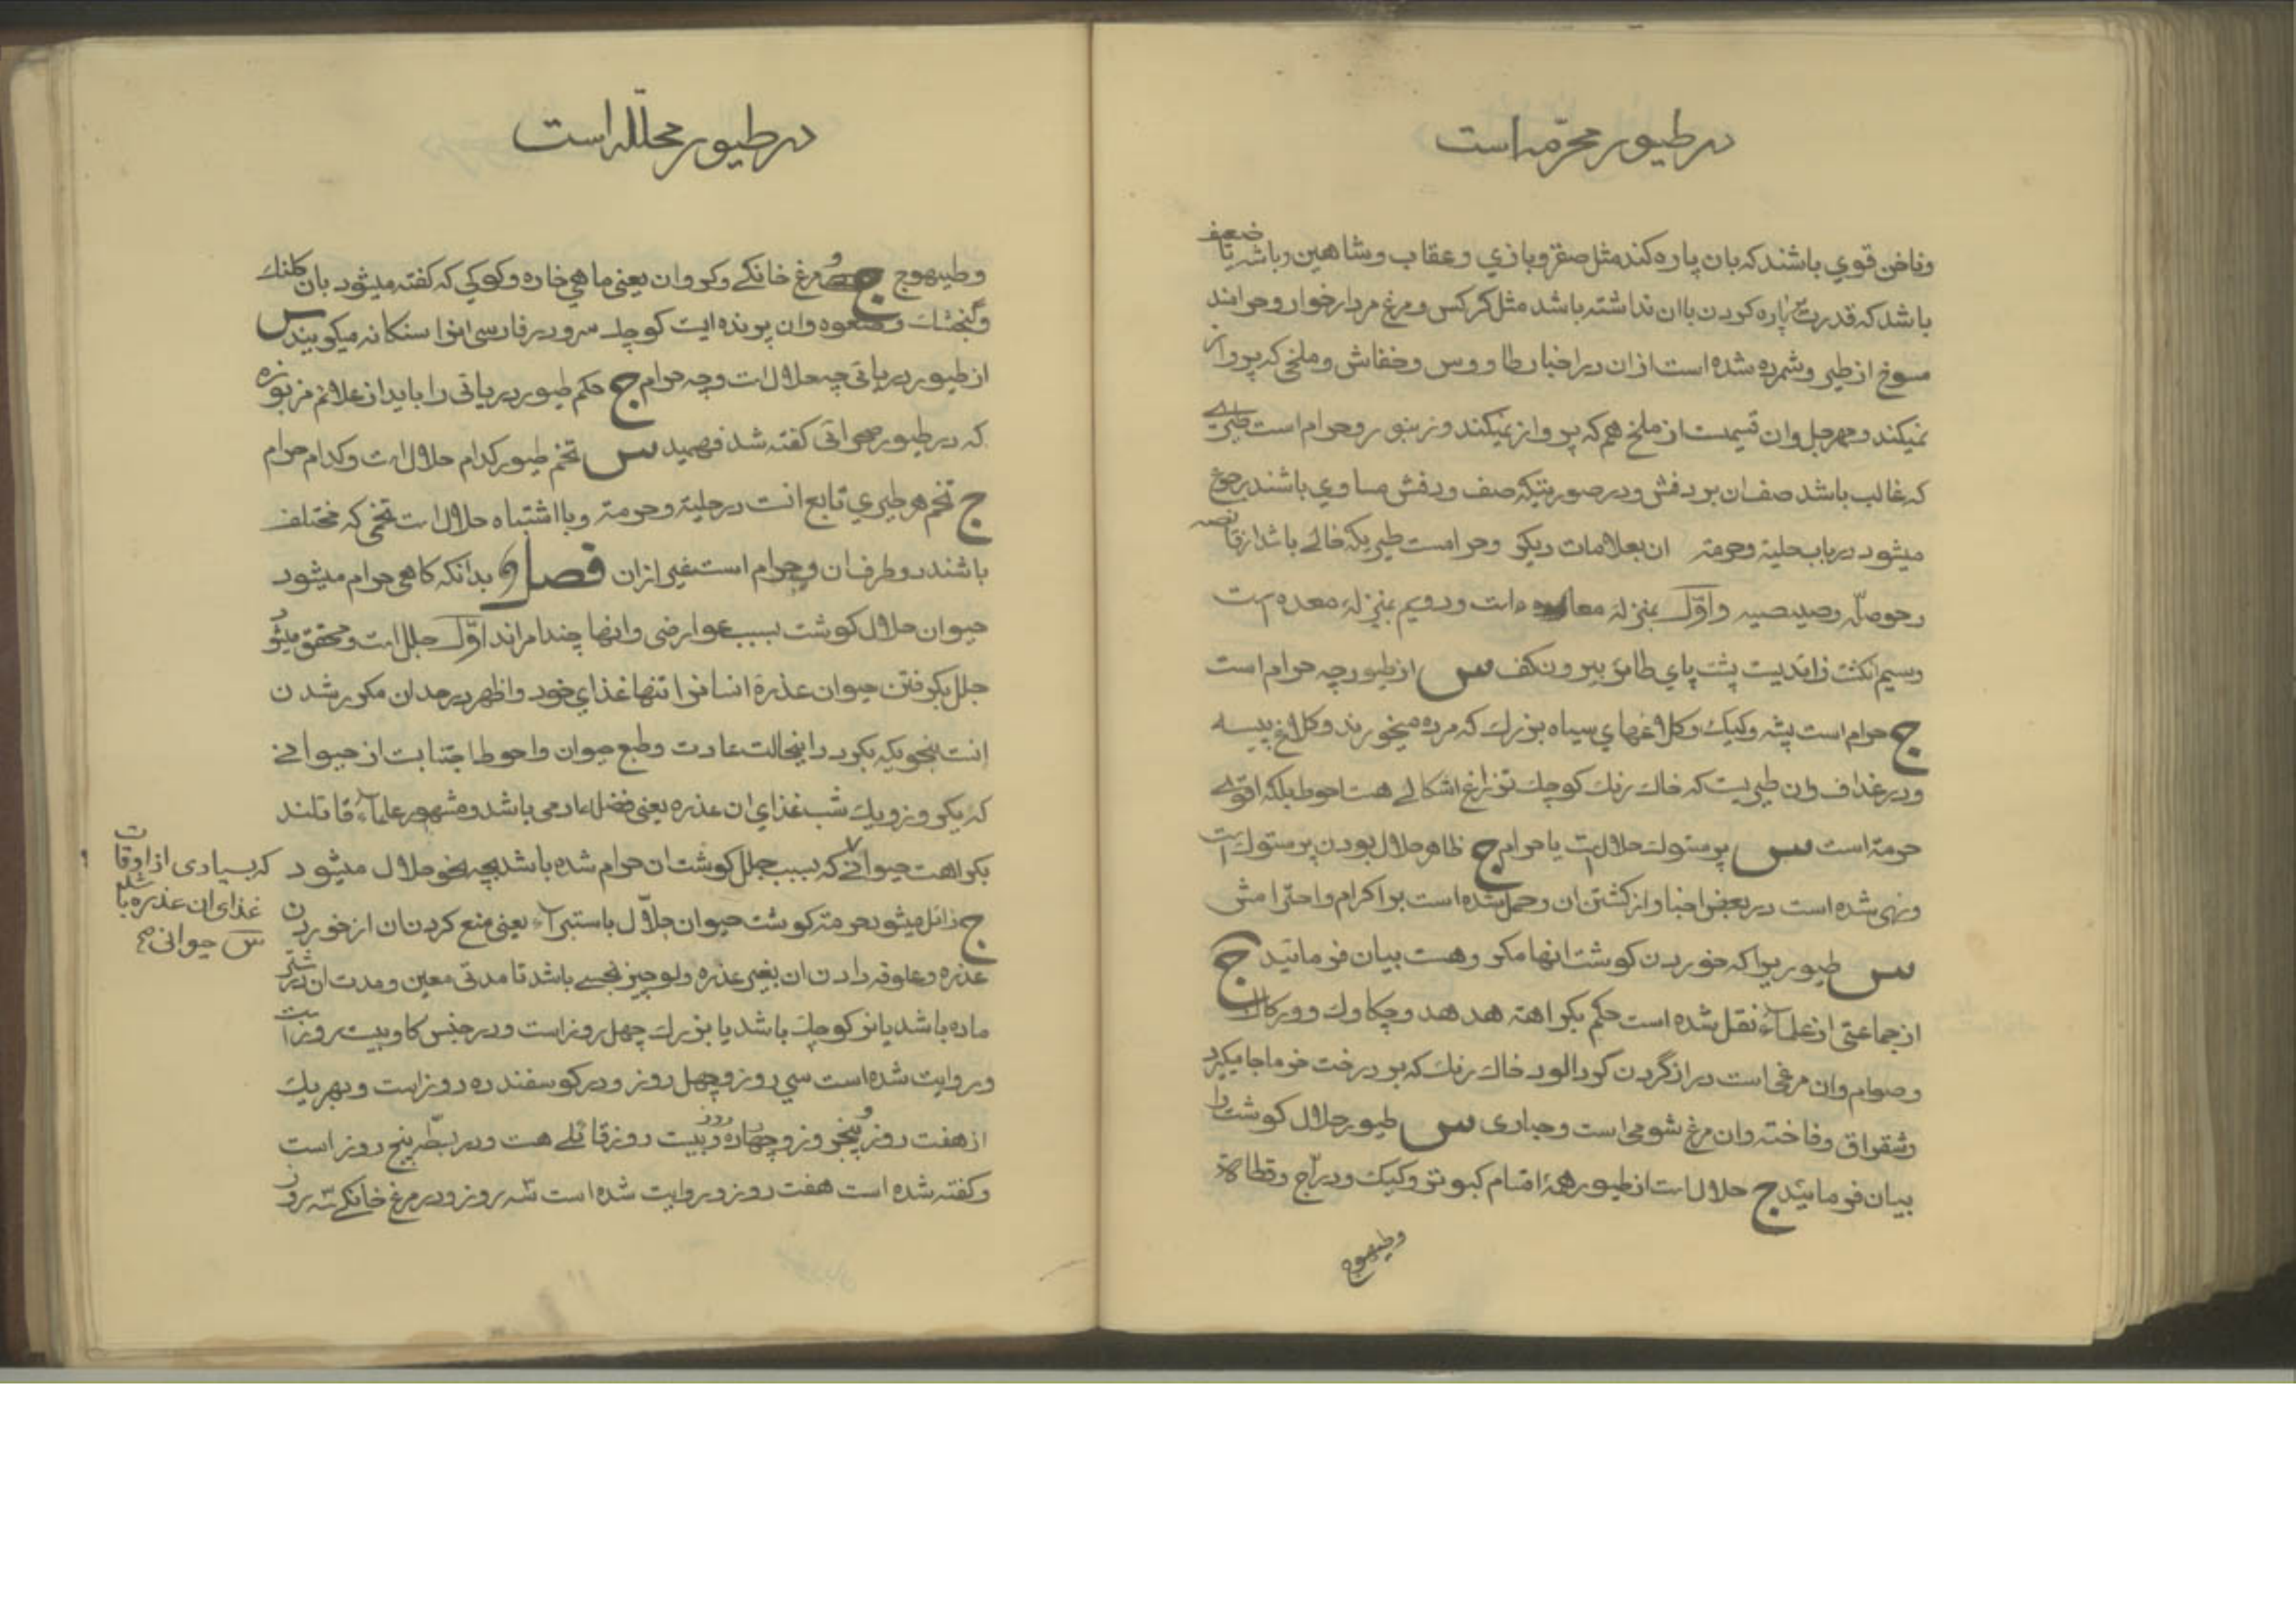 در طیور محرّمه است
وناخن قوي باشند که بان پاره کند مثل صقر و بازي و عقاب و شاهین و باشه یا ضعیف
باشد که قدرت پاره کردن باان نداشته باشد مثل کرکس و مرغ مردار خوار و حرامند
مسوخ از طیر و شمرده شده است ازان در اخبار طاووس و خفاش و ملخی که پرواز
نمیکند و ان قسیمت از ملخ هم که پرواز نمیکند و زنبور و حرام است طیري
که غالب باشد صف ان بر دفش و در صورتیکه صف و دفش مساوي باشند رجوع
میشود در باب حلیة و حرمة ان بعلامات دیکر و حرامست طیریکه خالے باشد از قانصه
و حوصلّه و صیصیه و اوّل بمنزلهٔ معاء است و دویم بمنزلهٔ معده است
و سیم انکشت زائدیست پشت پاي طائر بیرون کف س از طیور چه حرام است
ج حرام است پشه و کیک و کلاغهاي سیاه بزرك که مرده میخورند و کلاغ پیسه
و در غداف و ان طیریست که خاك رنك کوچك تر از زاغ اشکالے هست احوط بلکه اقوے
حرمة است س پرستوك حلال است یا حرام ج ظاهر حلال بودن پرستوك است
و نهی شده است در بعض اخبار از کشتن ان و حمل شده است بر اکرام و احترامش
س طیوریرا که خوردن کوشت انها مکروهست بیان فرمائید ج
از جماعتی از علماء نقل شده است حکم بکراهة هدهد و چکاوك و ورکاك
و صوام و ان مرغی است دراز گردن کردالود خاك رنك که بر درخت خرما جا میکیرد
و شقراق و فاخته و ان مرغ شومی است و حباری س طیور حلال کوشت را
بیان فرمائید ج حلال است از طیور همهٔ اقسام کبوتر و کبك و درّاج و قطاة
وطیهوج
در طیور محلّله است
و طیهوج و مرغ خانکے و کروان یعنی ماهی خاره و کرکی که کفته میشود بان کلنك
و گنجشك و صعوه و ان پرنده ایست کوچك سر و در فارسی انرا سنکانه میکویند س
از طیور دریائی چه حلال است و چه حرام ج حکم طیور دریائی را باید از علائم مزبوره
که در طیور صحرائی کفته شد فهمید س تخم طیور کدام حلال است و کدام حرام
ج تخم هر طیري تابع انست در حلیة و حرمة و با اشتباه حلال است تخمی که مختلف
باشند دو طرف ان و حرام است غیر ازان فصل بدانکه کاهی حرام میشود
حیوان حلال کوشت بسبب عوارضی و انها چند امراند اوّل جلل است و محقق میشود
جلل بکرفتن حیوان عذرهٔ انسانرا تنها غذاي خود و اظهر در حدان مکرر شدن
انست بنحویکه بکردد اینحالت عادت و طبع حیوان و احوط اجتنابست از حیوانے
که یکروز و یك شب غذاي ان عذره یعنی فضلهٔ ادمی باشد و مشهور علماء قائلند
بکراهت حیوانے که بسبب جلل کوشت ان حرام شده باشد بچه نحو حلال میشود
که بسیاری از اوقات
غذای ان عذره باشد
س حیوانی صح
ج زائل میشود حرمة کوشت حیوان جلاّل باستبراء یعنی منع کردن ان از خوردن
عذره و علوفه دادن ان بغیر عذره ولو چیز نجسے باشد تا مدتی معین و مدت ان در شتر
ماده باشد یا نر کوچك باشد یا بزرك چهل روز است و در جنس کاو بیست روز است
و روایت شده است سي روز و چهل روز و در کوسفند ده روز است و بهر یك
از هفت روز و پنجروز و چهارده روز و بیست روز قائلے هست و در بطّ پنج روز است
و کفته شده است هفت روز و روایت شده است سه روز و در مرغ خانکے سه روز